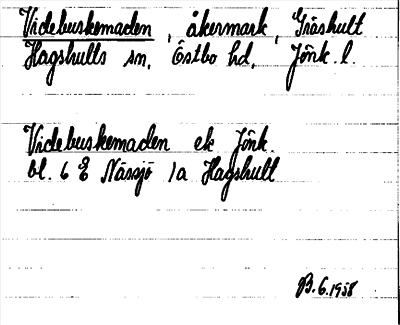 Videbuskemaden, åkermark, Gräshult
Hagshults sn, Östbo hd, Jönk. l.
Videbuskemaden ek Jönk.
bl. 6 E Nässjö 1a Hagshult
B. G. 1958